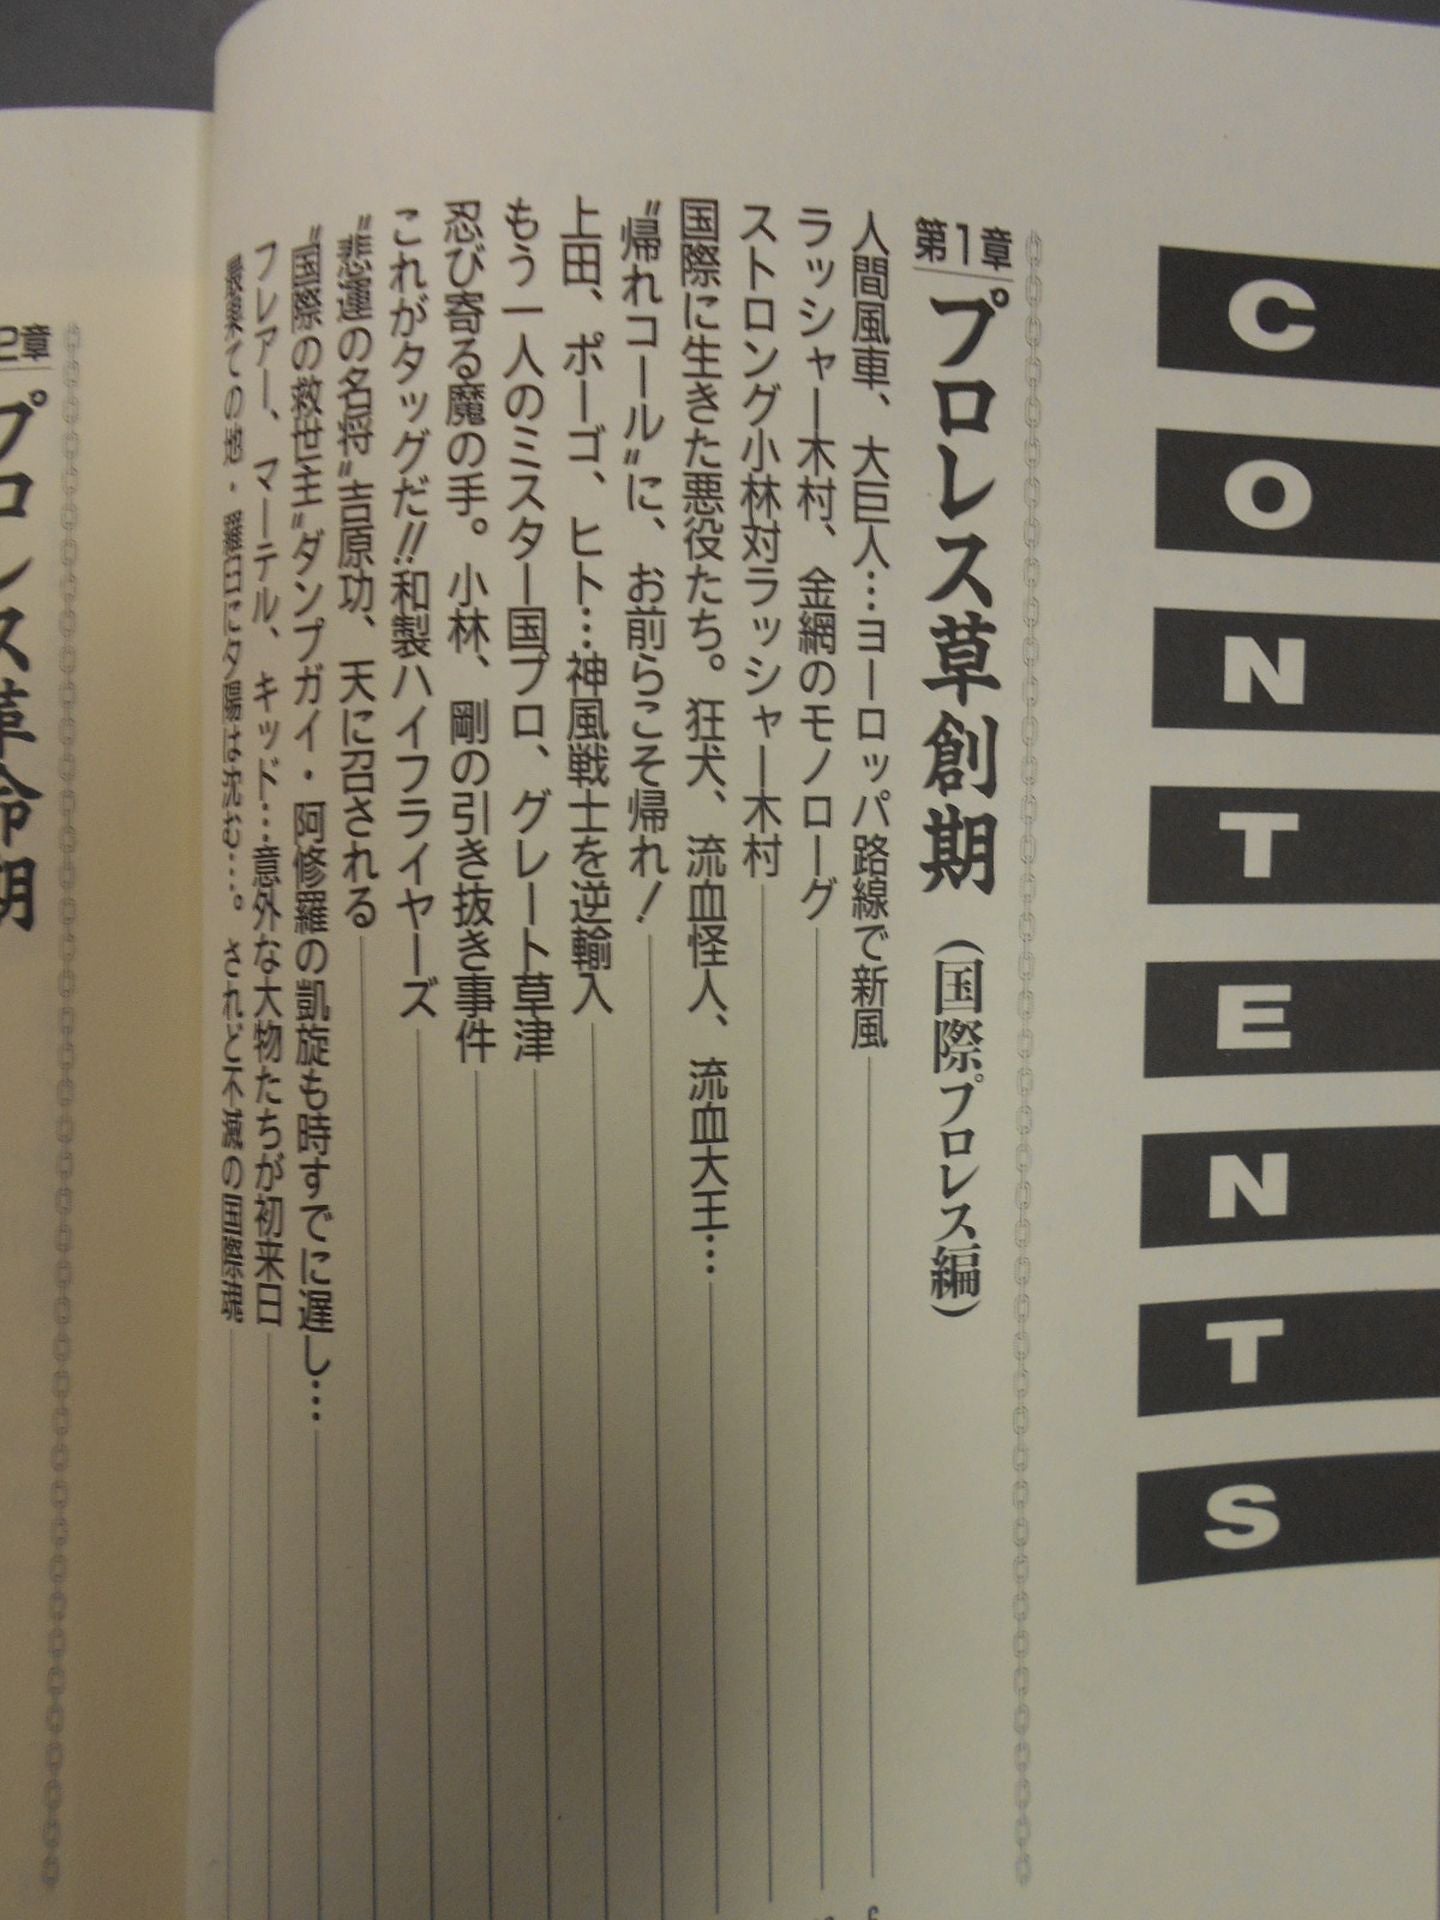 CONTENTS
第1章
プロレス草創期（国際プロレス編）
人間風車、大巨人…ヨーロッパ路線で新風
ラッシャー木村、金網のモノローグ
ストロング小林対ラッシャー木村
国際に生きた悪役たち。狂犬、流血怪人、流血大王…
〝帰れコール〟に、お前らこそ帰れ！
上田、ポーゴ、ヒト…神風戦士を逆輸入
もう一人のミスター国プロ、グレート草津
忍び寄る魔の手。小林、剛の引き抜き事件
これがタッグだ!!和製ハイフライヤーズ
〝悲運の名将〟吉原功、天に召される
〝国際の救世主〟ダンプガイ・阿修羅の凱旋も時すでに遅し…
フレアー、マーテル、キッド…意外な大物たちが初来日
最果ての地・羅臼に夕陽は沈む…。されど不滅の国際魂
2章
プロレス革命期